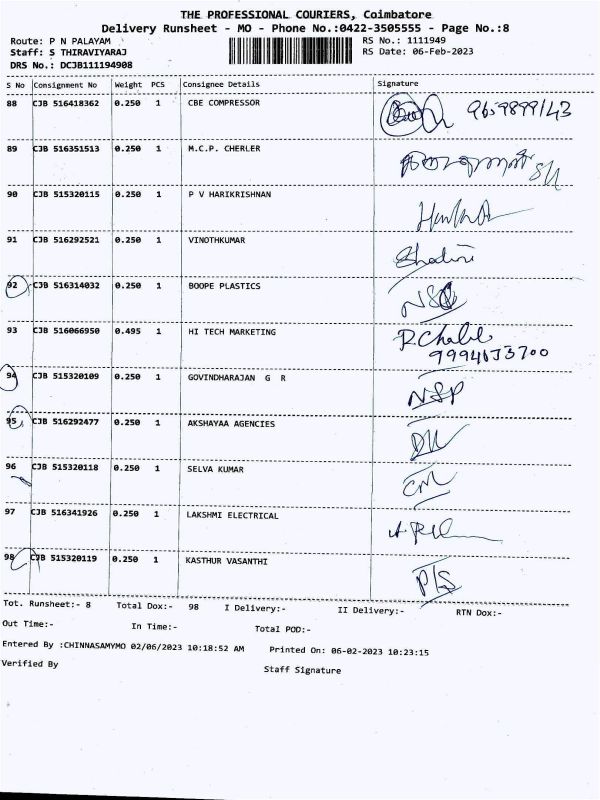 THE PROFESSIONAL COURIERS, Coimbatore
Delivery Runsheet - MO - Phone No.:0422-3505555 - Page No.:8
Route: P N PALAYAM RS No.: 1111949
Staff: S THIRAVIYARAJ RS Date: 06-Feb-2023
DRS No.: DCJB111194908
S No Consignment No Weight PCS Consignee Details Signature
88 CJB 516418362 0.250 1 CBE COMPRESSOR
89 CJB 516351513 0.250 1 M.C.P. CHERLER
90 CJB 515320115 0.250 1 P V HARIKRISHNAN
91 CJB 516292521 0.250 1 VINOTHKUMAR
92 CJB 516314032 0.250 1 BOOPE PLASTICS
93 CJB 516066950 0.495 1 HI TECH MARKETING
94 CJB 515320109 0.250 1 GOVINDHARAJAN G R NSP
95 CJB 516292477 0.250 1 AKSHAYAA AGENCIES
96 CJB 515320118 0.250 1 SELVA KUMAR
97 CJB 516341926 0.250 1 LAKSHMI ELECTRICAL
98 CJB 515320119 0.250 1 KASTHUR VASANTHI
Tot. Runsheet:- 8 Total Dox:- 98 I Delivery:- II Delivery:- RTN Dox:-
Out Time:- In Time:- Total POD:-
Entered By :CHINNASAMYMO 02/06/2023 10:18:52 AM Printed On: 06-02-2023 10:23:15
Verified By Staff Signature